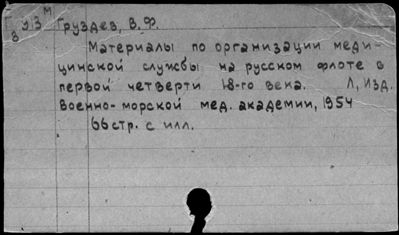 Груздев, В.Ф.
Материалы по организации меди-
цинской службы на русском флоте в
первой четверти 18-го века. Л, Изд.
Военно-морской мед. академии, 1954
66 стр. с илл.